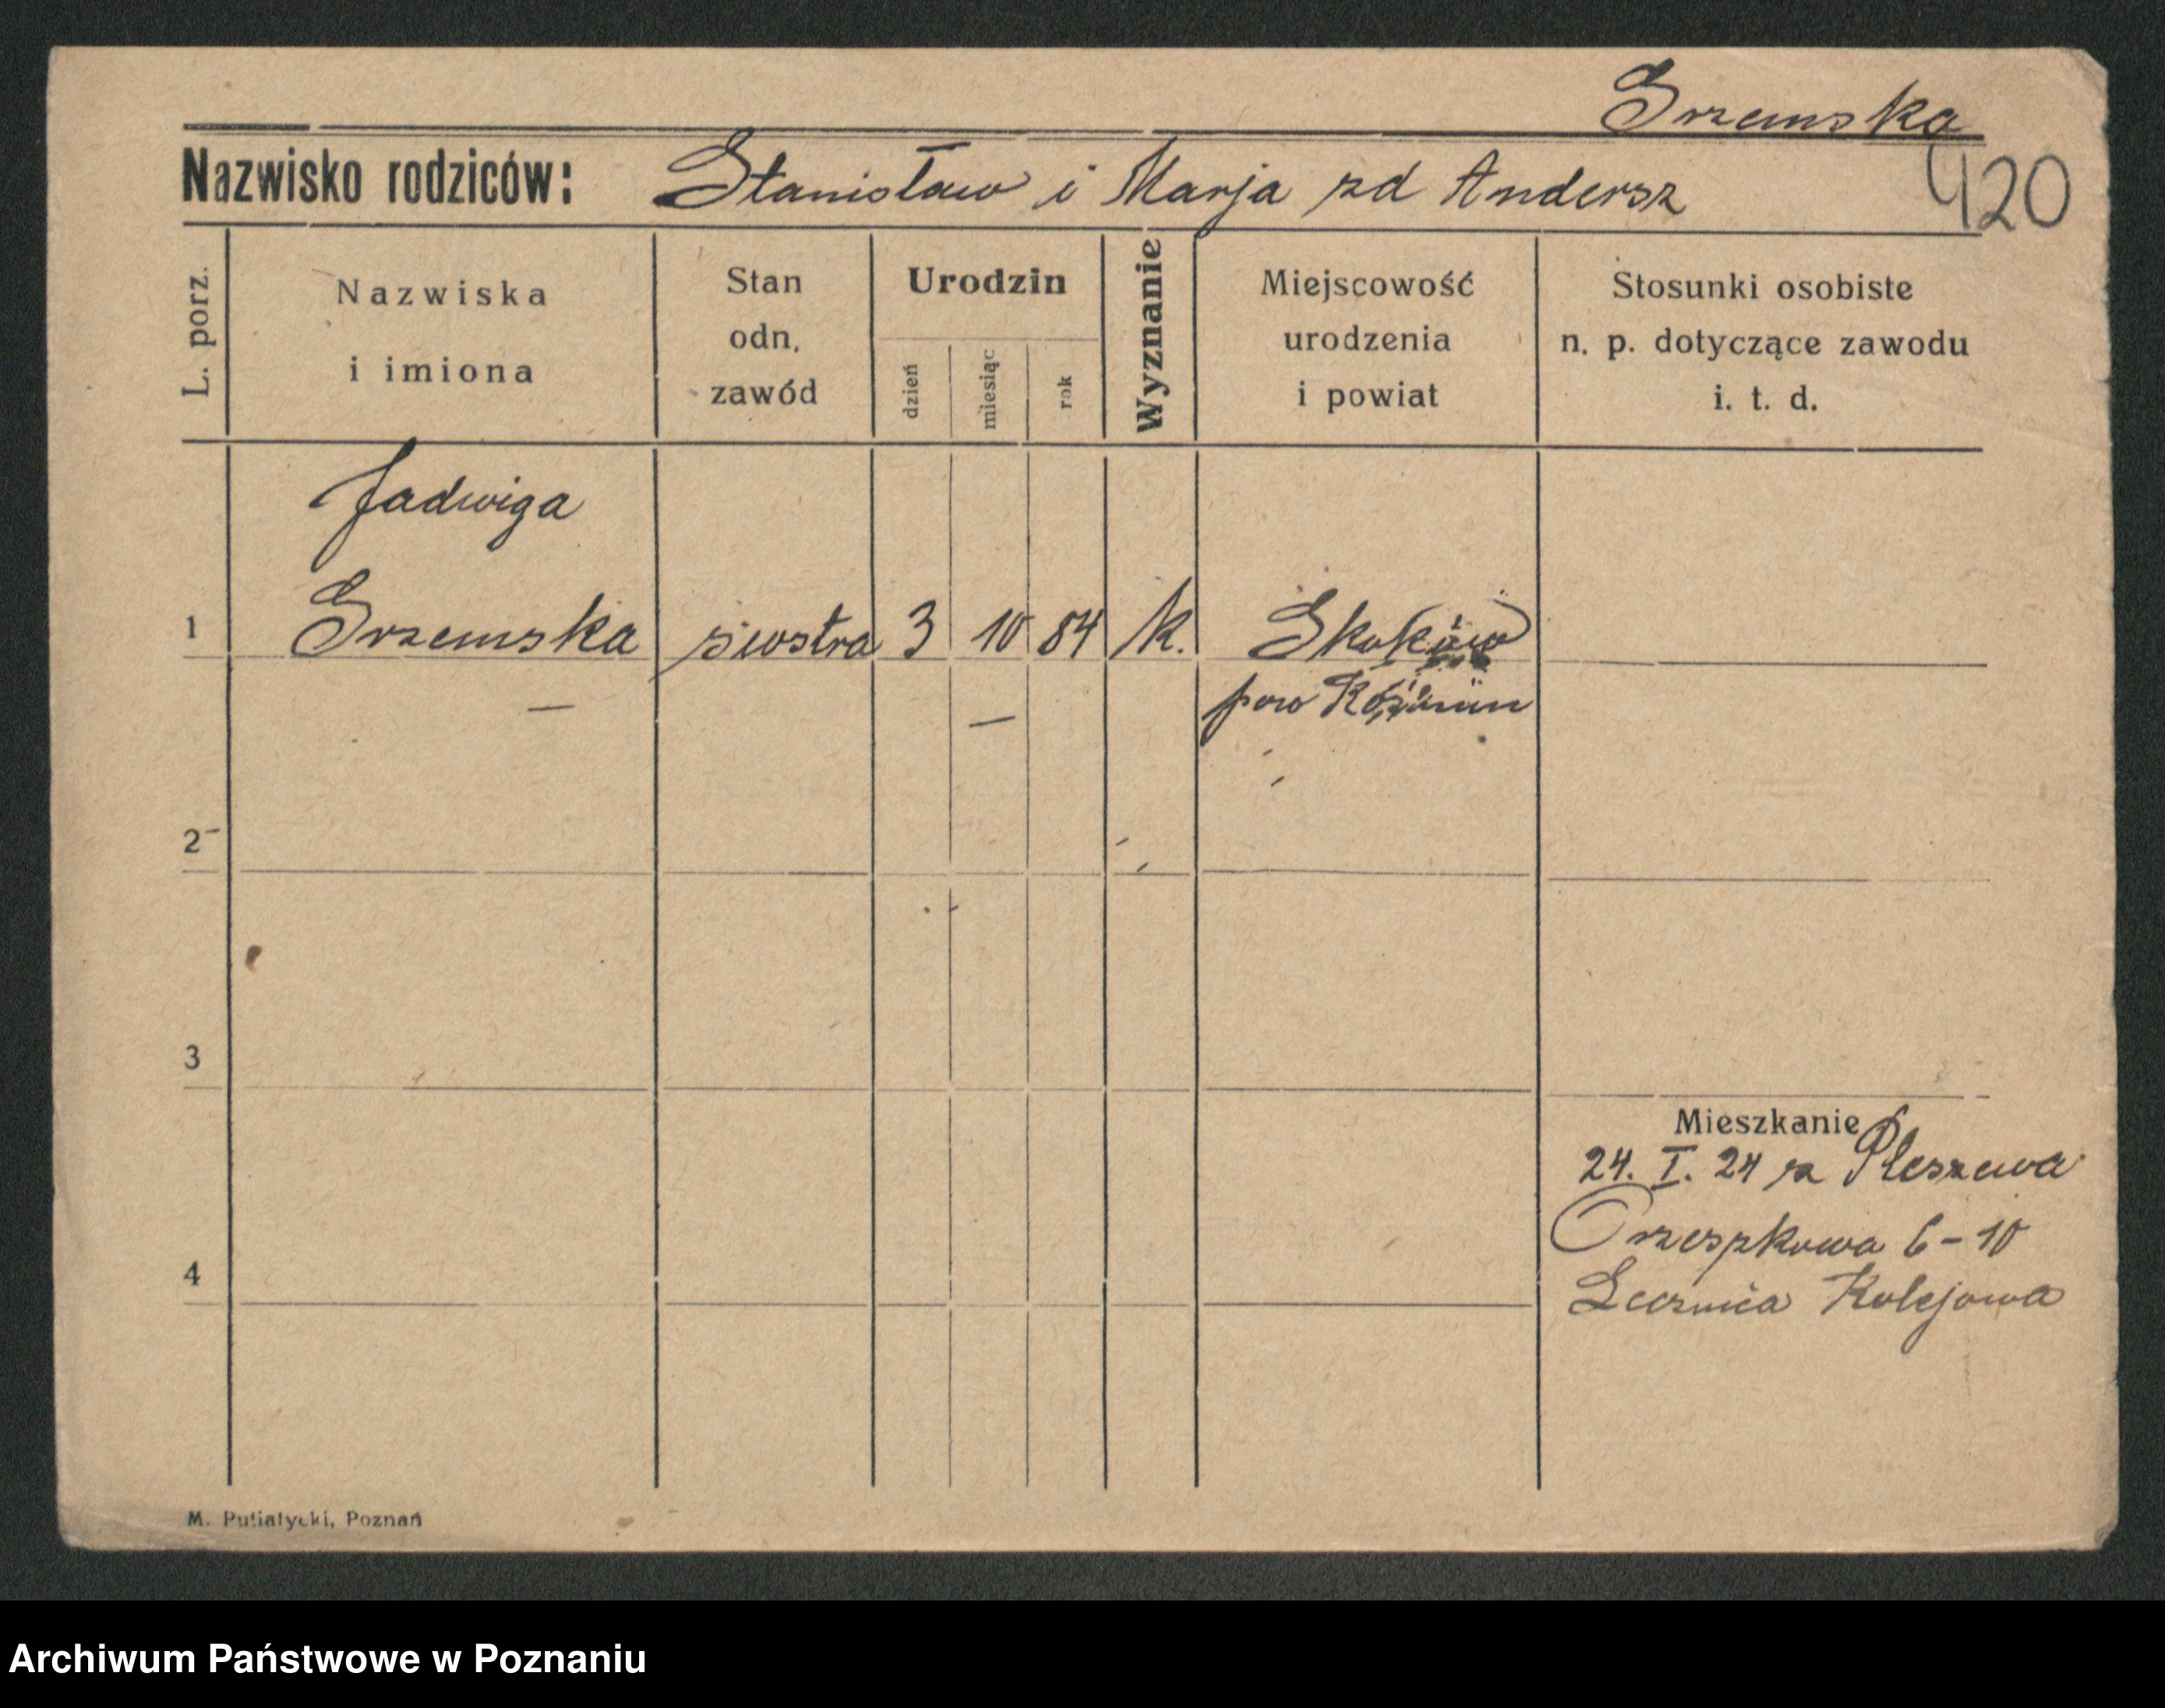 Grzemska
Nazwisko rodziców: Stanisław i Marja zd Andersz
420
L. porz.
Nazwiska
i imiona
Stan
odn.
zawód
Urodzin
dzień
miesiąc
rok
Wyznanie
Miejscowość
urodzenia
i powiat
Stosunki osobiste
n. p. dotyczące zawodu
i. t. d.
Jadwiga
1 Grzemska siostra 3 10 84 k. Skoków
pow Koźmin
2
3
Mieszkanie
24. I. 24 z Pleszewa
Orzeszkowa 6-10
4
Lecznica Kolejowa
M. Putiatycki, Poznań
Archiwum Państwowe w Poznaniu